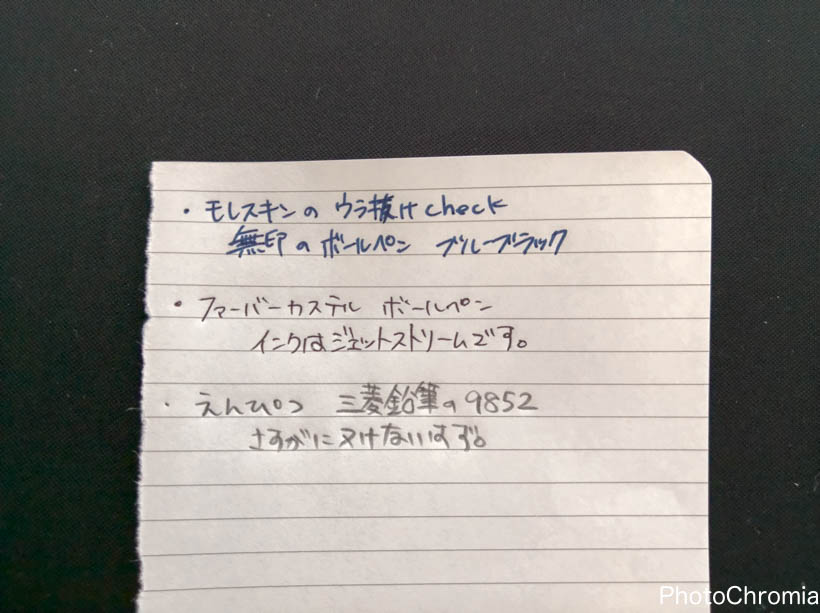 ・モレスキンの ウラ抜けcheck
無印のボールペン ブルーブラック
・ファーバーカステル ボールペン
インクはジェットストリームです。
・えんぴつ 三菱鉛筆の9852
さすがにヌけないはず。
PhotoChromia